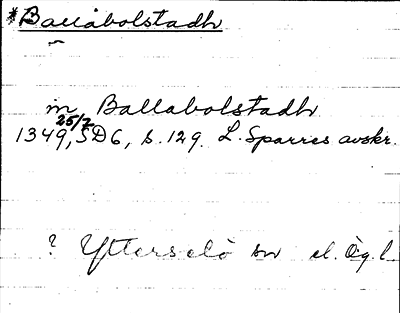 *Ballabolstadh
m Ballabolstadh
25/7
1349, SD6, s. 129. L. Sparres avskr.
? Ytterselö sn el. Ög. l